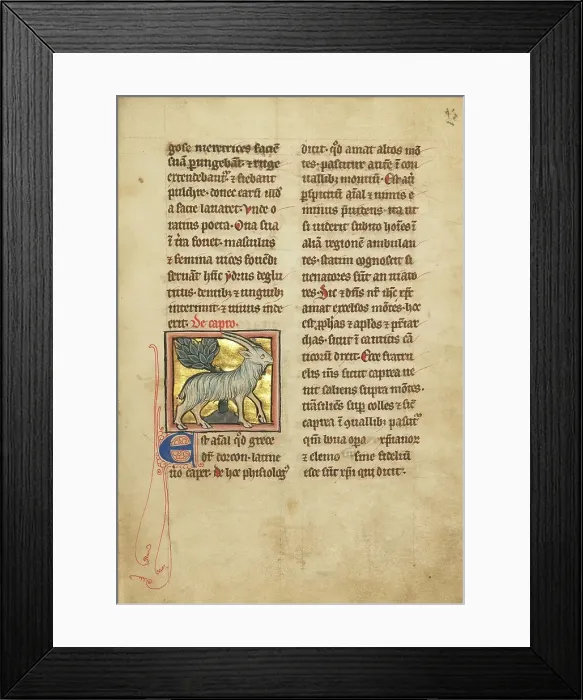 gose meretrices faciē
suā pungebāt ⁊ ruge
extendebant᷑ ⁊ fiebant
pulchre donec earū
a facie lauaret. Vnde o
ratius poeta. Oua sua
ī t̄ra fouet. masculus
⁊ femina uices fouēdi
seruāt hūc ydrus deglu
titus. dentib; ⁊ unguib;
interimit ⁊ uiuus inde
exit. De capro.
Est aīal qd̄ grece
dr̄ dorcon. latine
uō caper. de hoc phisiolog᷒
dicit. qd̄ amat altos mō
tes. pascitur autē ī con
uallib; montiū. Est aūt
aīal ⁊ nimis e
minus p̄uidens. ita ut
si uiderit subito hoīes ī
aliā regionē ambulan
tes. statim cognoscit si
uenatores sūt an uiato
res. Sic ⁊ dn̄s nr̄ ihc̄ xp̄c
amat excelsos mōtes. hoc
est. ꝓphās ⁊ ap̄los ⁊ pr̄iar
chas. sicut ī canticis cā
ticorū dicit. Ecce fratru
elis m̄s sicut caprea ue
nit saliens supra mōtes.
trāsiliēs sup̄ colles ⁊ sic̄
capra ī quallib; pascit᷑
qm̄ bona opa xp̄ianor
⁊ elemo sine fidelium
esce sūt xp̄i qui dicit.